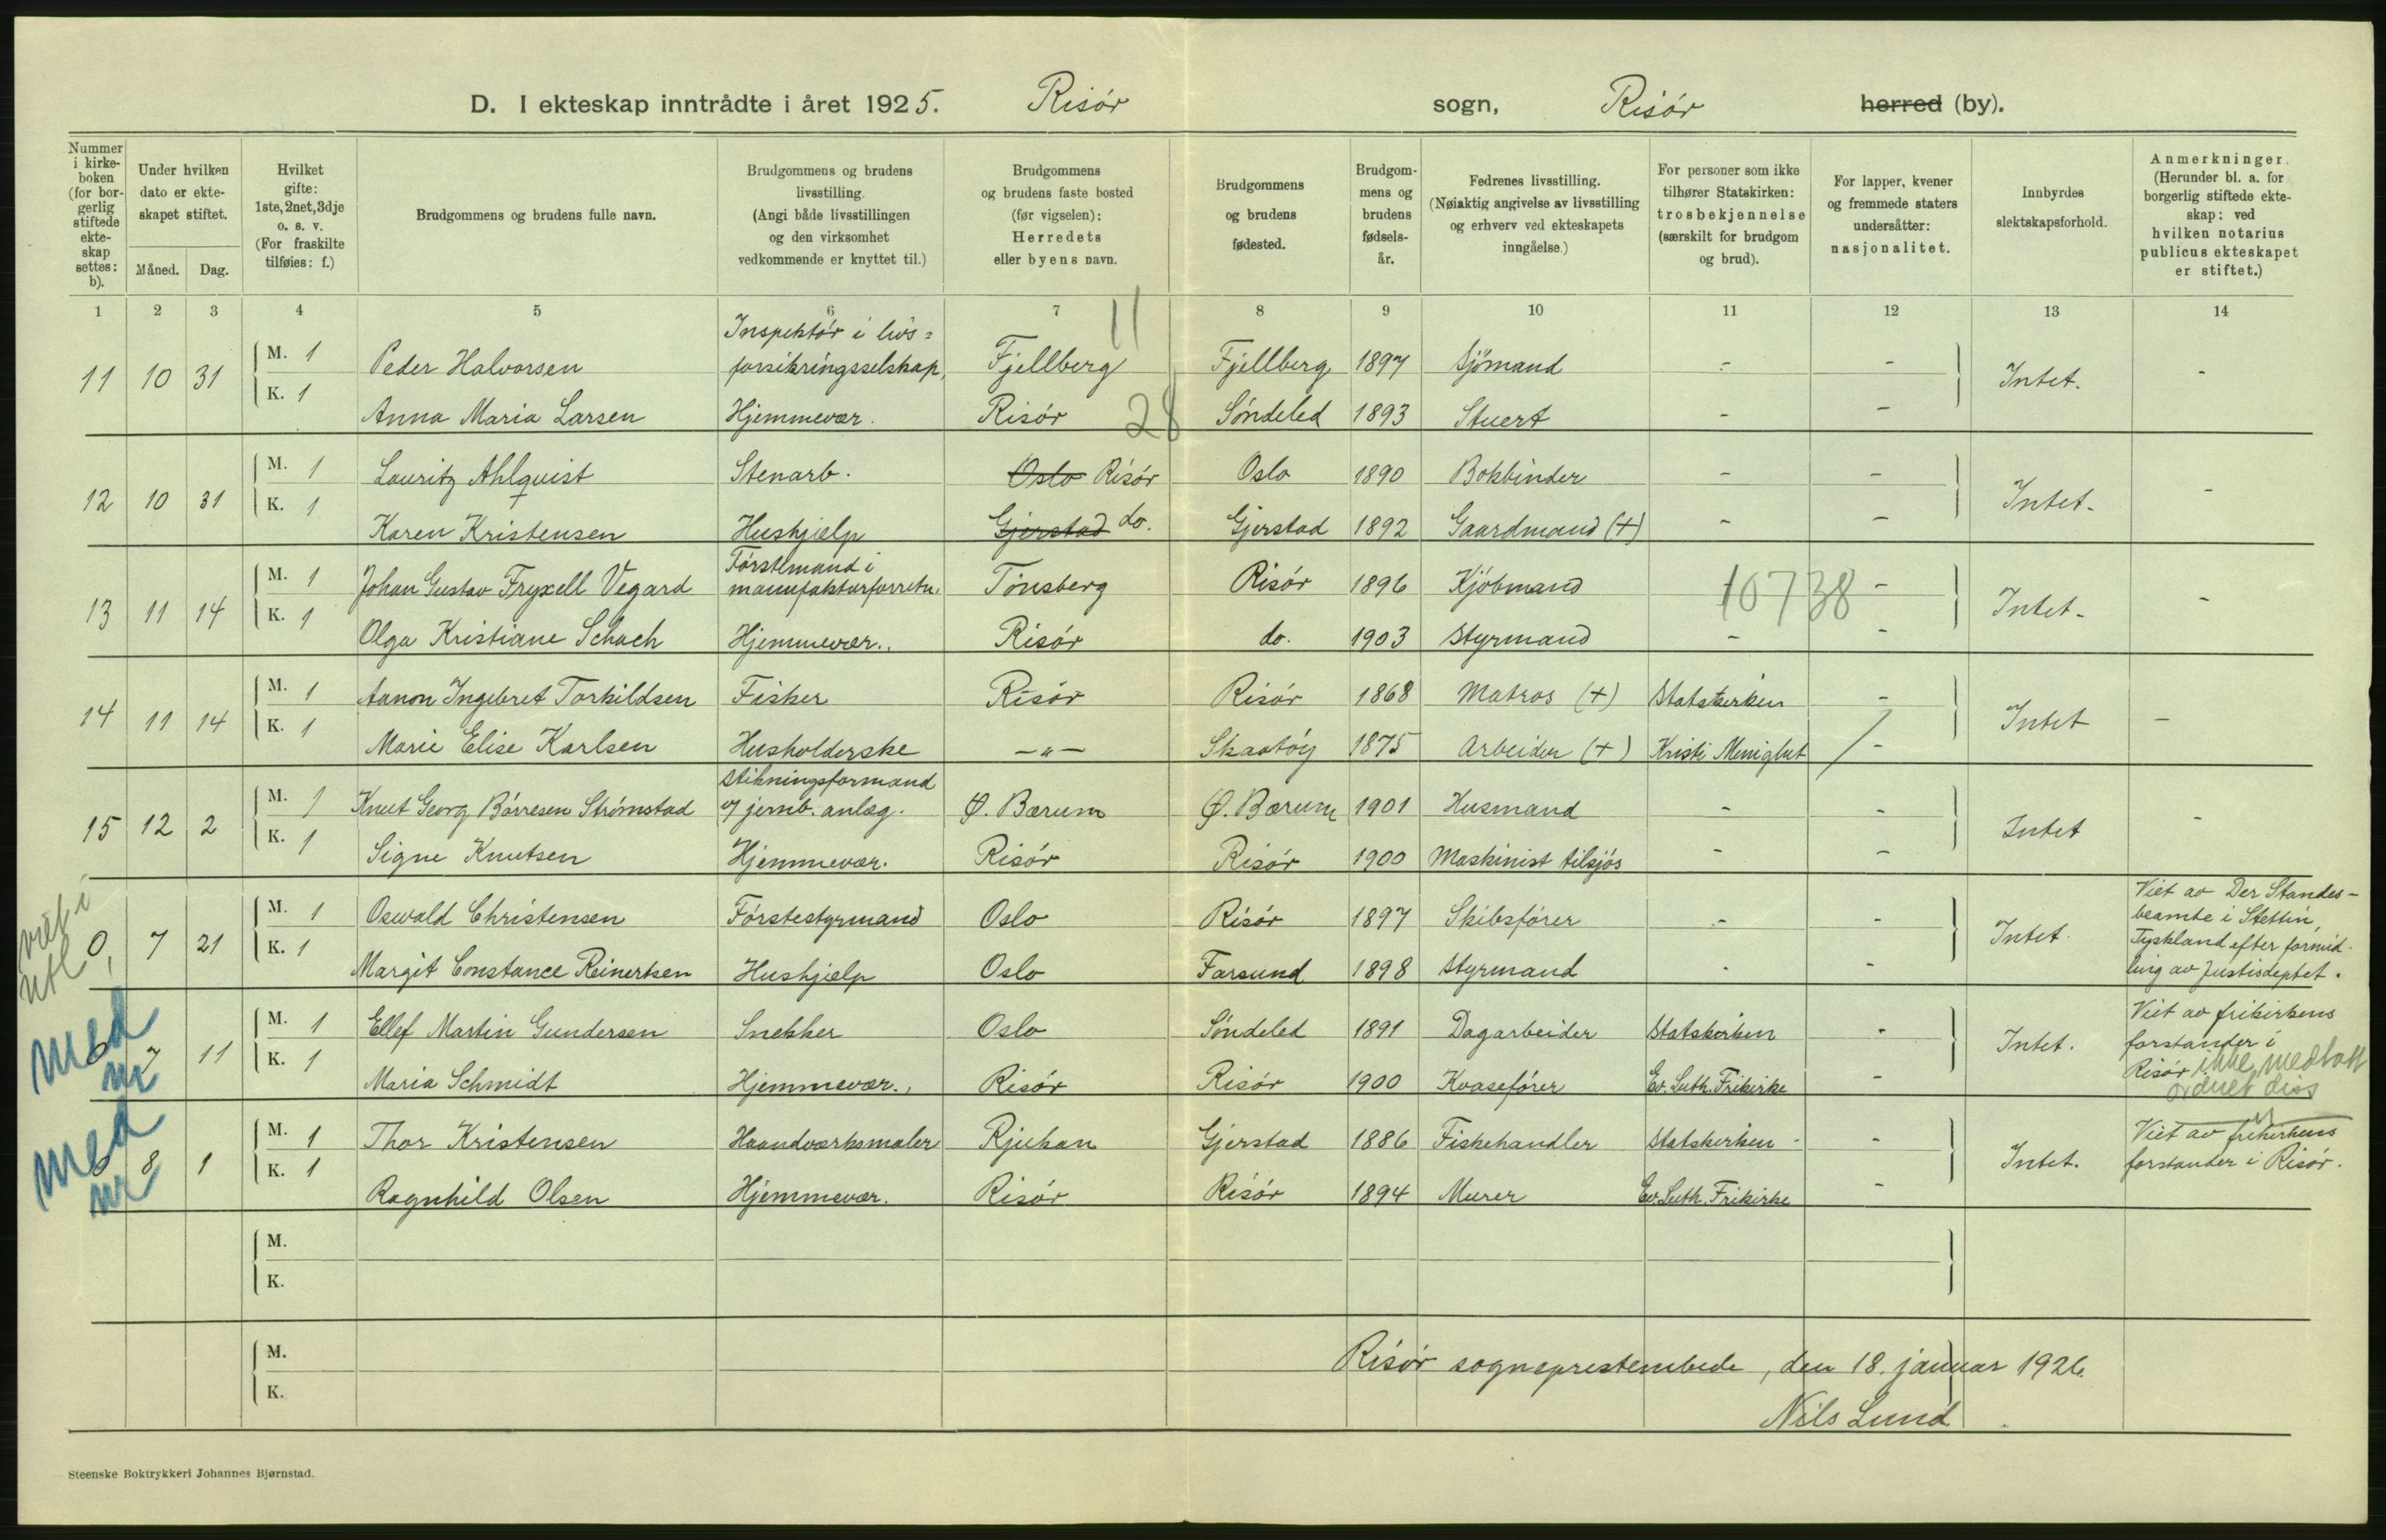 D. I ekteskap inntrådte i året 1925. Risør sogn, Risør herred (by).
Nummer i kirkeboken (for borgerlig stiftede ekteskap settes: b).
Under hvilken dato er ekteskapet stiftet.
Måned. Dag.
Hvilket gifte: 1ste, 2net, 3dje o. s. v. (For fraskilte tilføies: f.)
Brudgommens og brudens fulle navn.
Brudgommens og brudens livsstilling. (Angi både livsstillingen og den virksomhet vedkommende er knyttet til.)
Brudgommens og brudens faste bosted (før vigselen): Herredets eller byens navn.
Brudgommens og brudens fødested.
Brudgommens og brudens fødselsår.
Fedrenes livsstilling. (Nøiaktig angivelse av livsstilling og erhverv ved ekteskapets inngåelse.)
For personer som ikke tilhører Statskirken: trosbekjennelse (særskilt for brudgom og brud).
For lapper, kvener og fremmede staters undersåtter: nasjonalitet.
Innbyrdes slektskapsforhold.
Anmerkninger. (Herunder bl. a. for borgerlig stiftede ekteskap: ved hvilken notarius publicus ekteskapet er stiftet.)
1 2 3 4 5 6 7 8 9 10 11 12 13 14
11
11 10 31 M. 1 Peder Halvorsen Inspektør i livs=forsikringsselskap, Fjellberg Fjellberg 1897 Sjömand - - Intet. -
K. 1 Anna Maria Larsen Hjemmevær. Risør 28 Söndeled 1893 Stuert - -
12 10 31 M. 1 Lauritz Ahlquist Stenarb. Oslo Risör Oslo 1890 Bokbinder - - Intet. -
K. 1 Karen Kristensen Hushjælp Gjerstad do. Gjerstad 1892 Gaardmand (+) - -
13 11 14 M. 1 Johan Gustav Fryxell Vegard Förstemand i manufakturforretn. Tönsberg Risör 1896 Kjöbmand 10738 - Intet. -
K. 1 Olga Kristiane Schach Hjemmevær. Risör do. 1903 Styrmand - -
14 11 14 M. 1 Aanon Ingebret Torkildsen Fisker Risör Risör 1868 Matros (+) Statskirken - Intet -
K. 1 Marie Elise Karlsen Husholderske -"- Skaatöy 1875 Arbeider (+) Kristi Menighet / -
15 12 2 M. 1 Knut Georg Börresen Strömstad Stikningsformand v/ jernb. anlæg. Ø. Bærum Ø. Bærum 1901 Husmand - - Intet -
K. 1 Signe Knutsen Hjemmevær. Risör Risör 1900 Maskinist tilsjös - -
viet i utl
0, 7 21 M. 1 Oswald Christensen Förstestyrmand Oslo Risör 1897 Skibsförer - - Intet. Viet av Der Standes-
beamte i Stettin,
Tyskland efter formid-
K. 1 Margit Constance Reinertsen Hushjælp Oslo Farsund 1898 Styrmand - - ling av Justisdeptet.
med nr
0 7 11 M. 1 Ellef Martin Gundersen Snekker Oslo Söndeled 1891 Dagarbeider Statskirken - Intet. Viet av frikirkens
forstander i
K. 1 Maria Schmidt Hjemmevær. Risör Risör 1900 Kvasefører Ev. Luth. Frikirke - Risör ikke medtatt
med nr
0 8 1 M. 1 Thor Kristensen Haandværksmaler Rjukan Gjerstad 1886 Fiskehandler Statskirken - Intet. Viet av frikirkens
forstander i Risör.
K. 1 Ragnhild Olsen Hjemmevær. Risör Risör 1894 Murer Ev. Luth. Frikirke -
M.
K.
M.
K.
Risör sogneprestembede, den 18. januar 1926.
Nils Lund.
Steenske Boktrykkeri Johannes Bjørnstad.